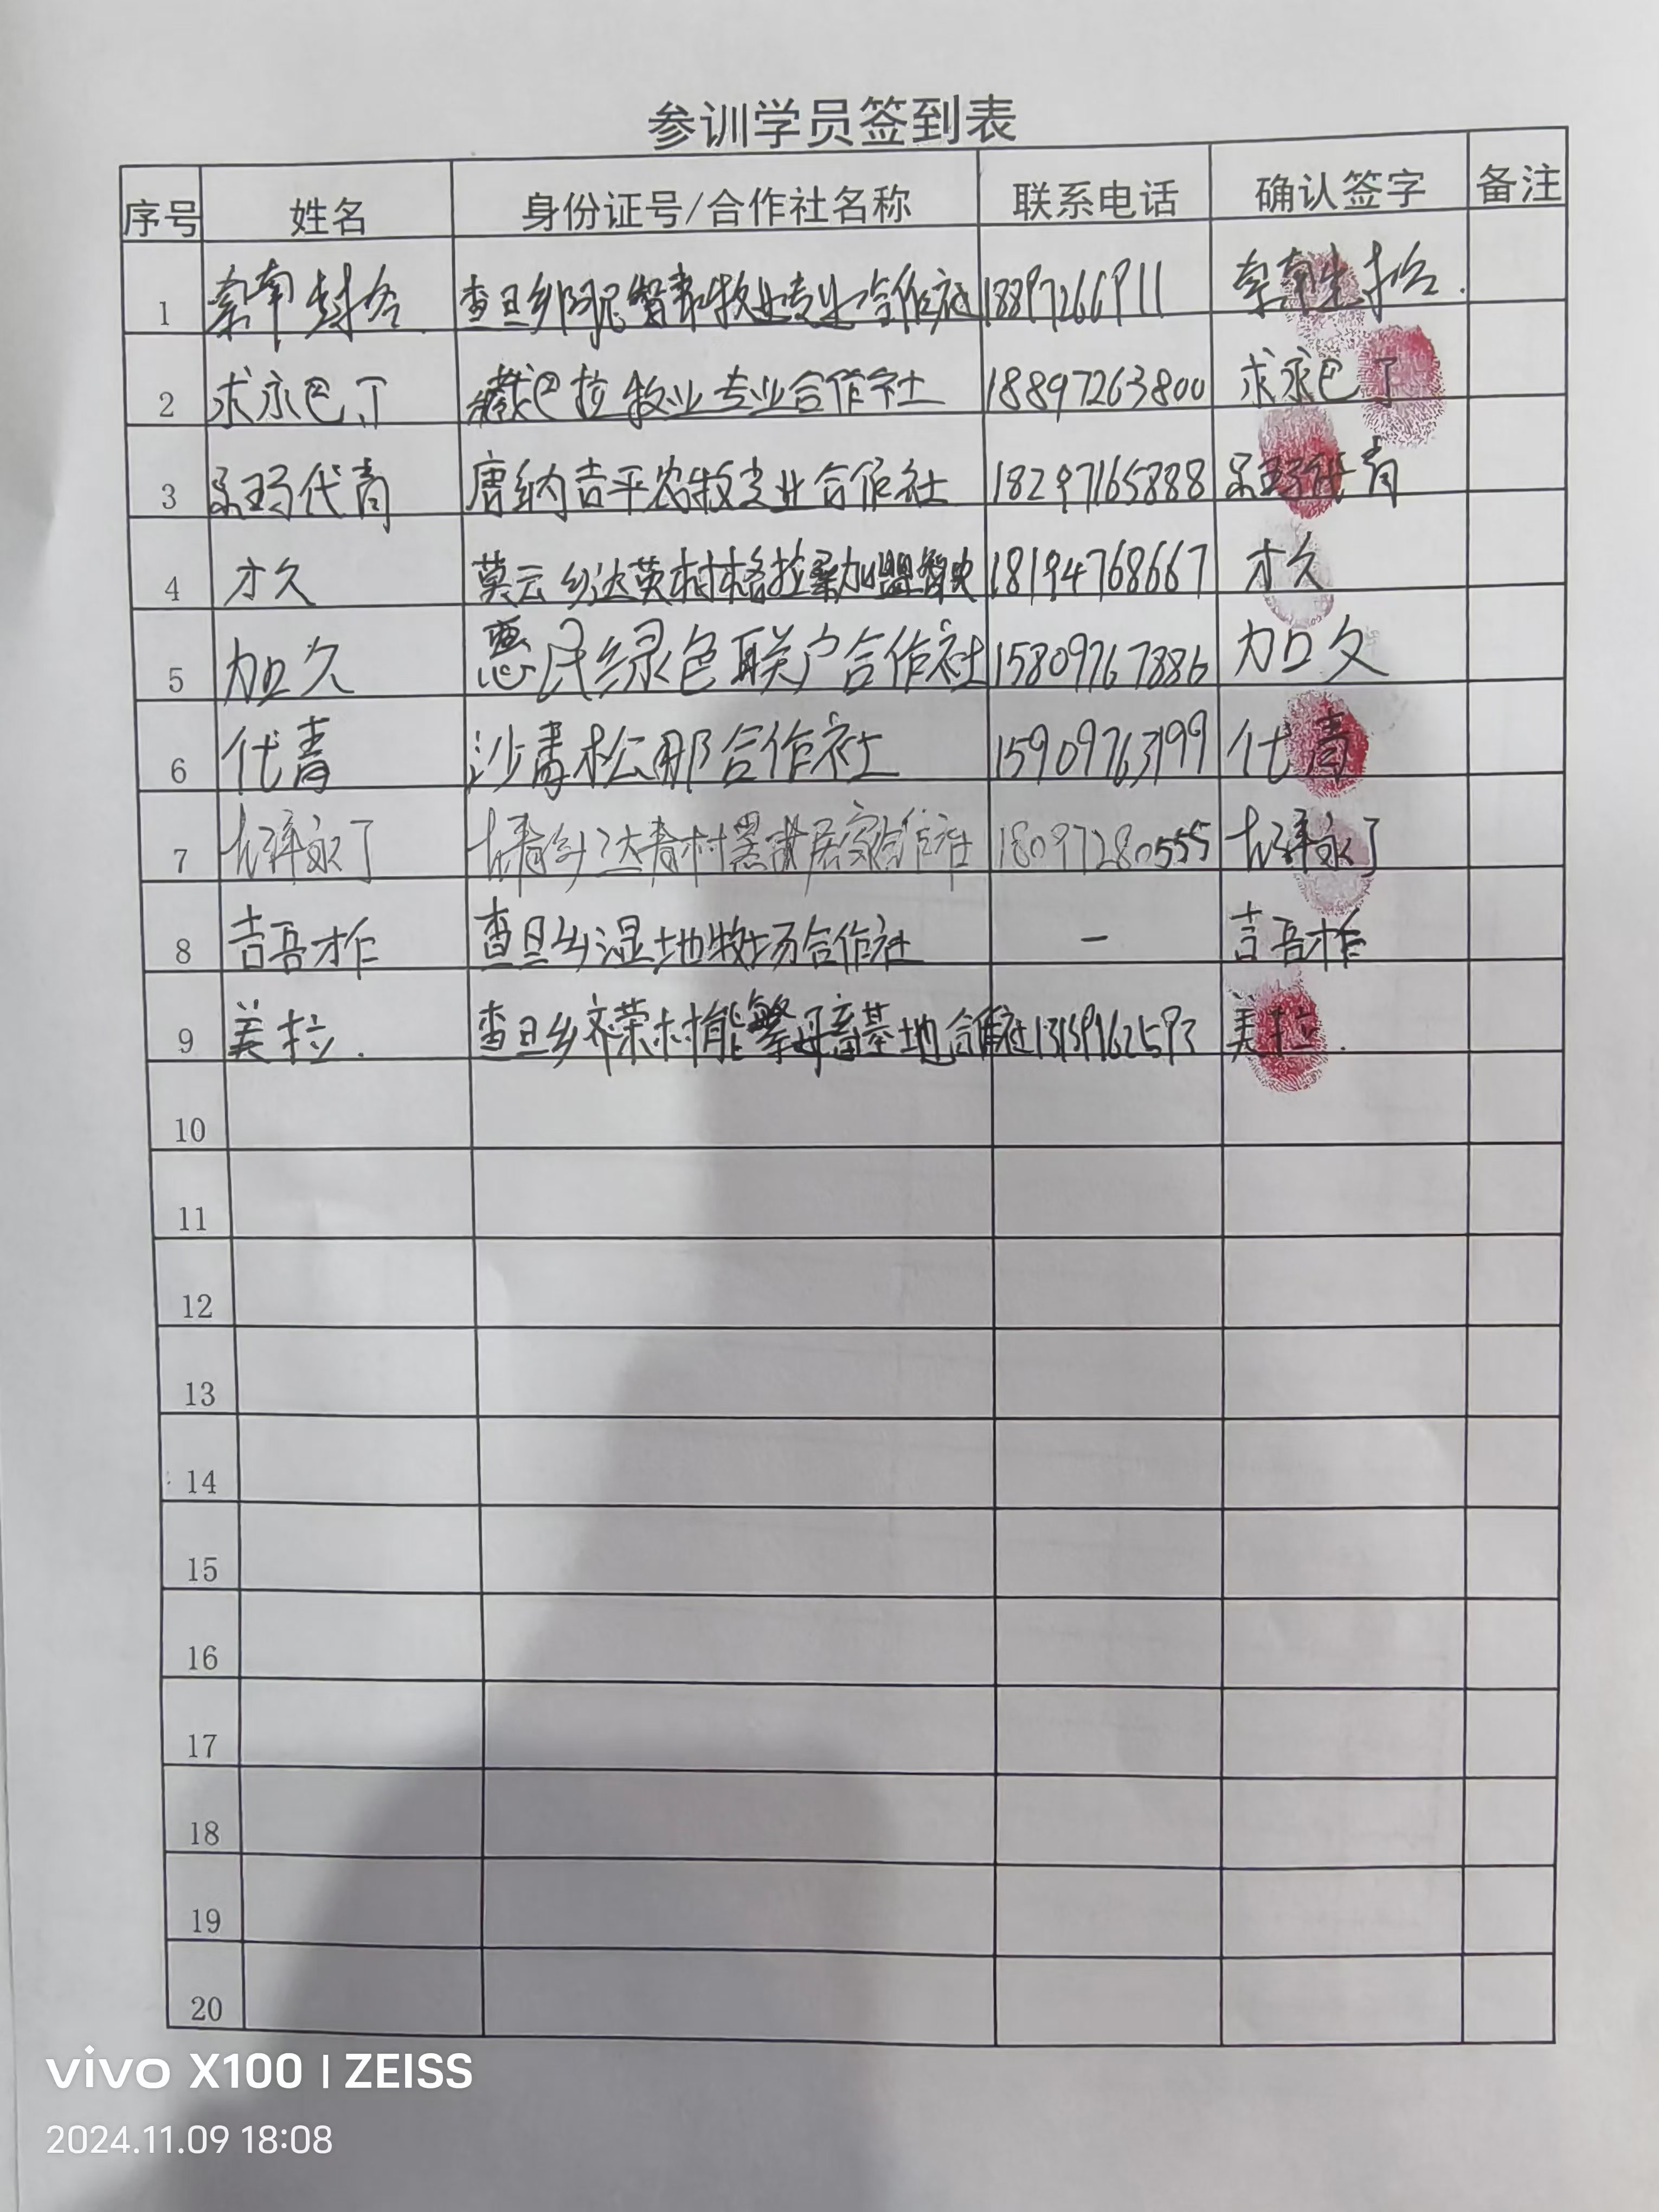 参训学员签到表
序号 姓名 身份证号/合作社名称 联系电话 确认签字 备注
1 索南 查旦乡阿尼 牧业专业合作社 18897266911 索南
2 求永巴丁 藏巴拉牧业专业合作社 18897263800 求永巴丁
3 代青 唐纳吉平农牧专业合作社 18297165888 代青
4 才久 莫云乡达英村格拉 加盟 18194768667 才久
5 加久 惠民绿色联户合作社 15809767886 加久
6 代青 沙青松那合作社 15909763199 代青
7 尕泽永丁 青村 合作社 18097280555 尕泽永丁
8 吉吾才仁 查旦乡湿地牧场合作社 — 吉吾才仁
9 美拉. 查旦乡齐荣村能繁母畜基地合作社 美拉.
10
11
12
13
14
15
16
17
18
19
20
vivo X100 | ZEISS
2024.11.09 18:08